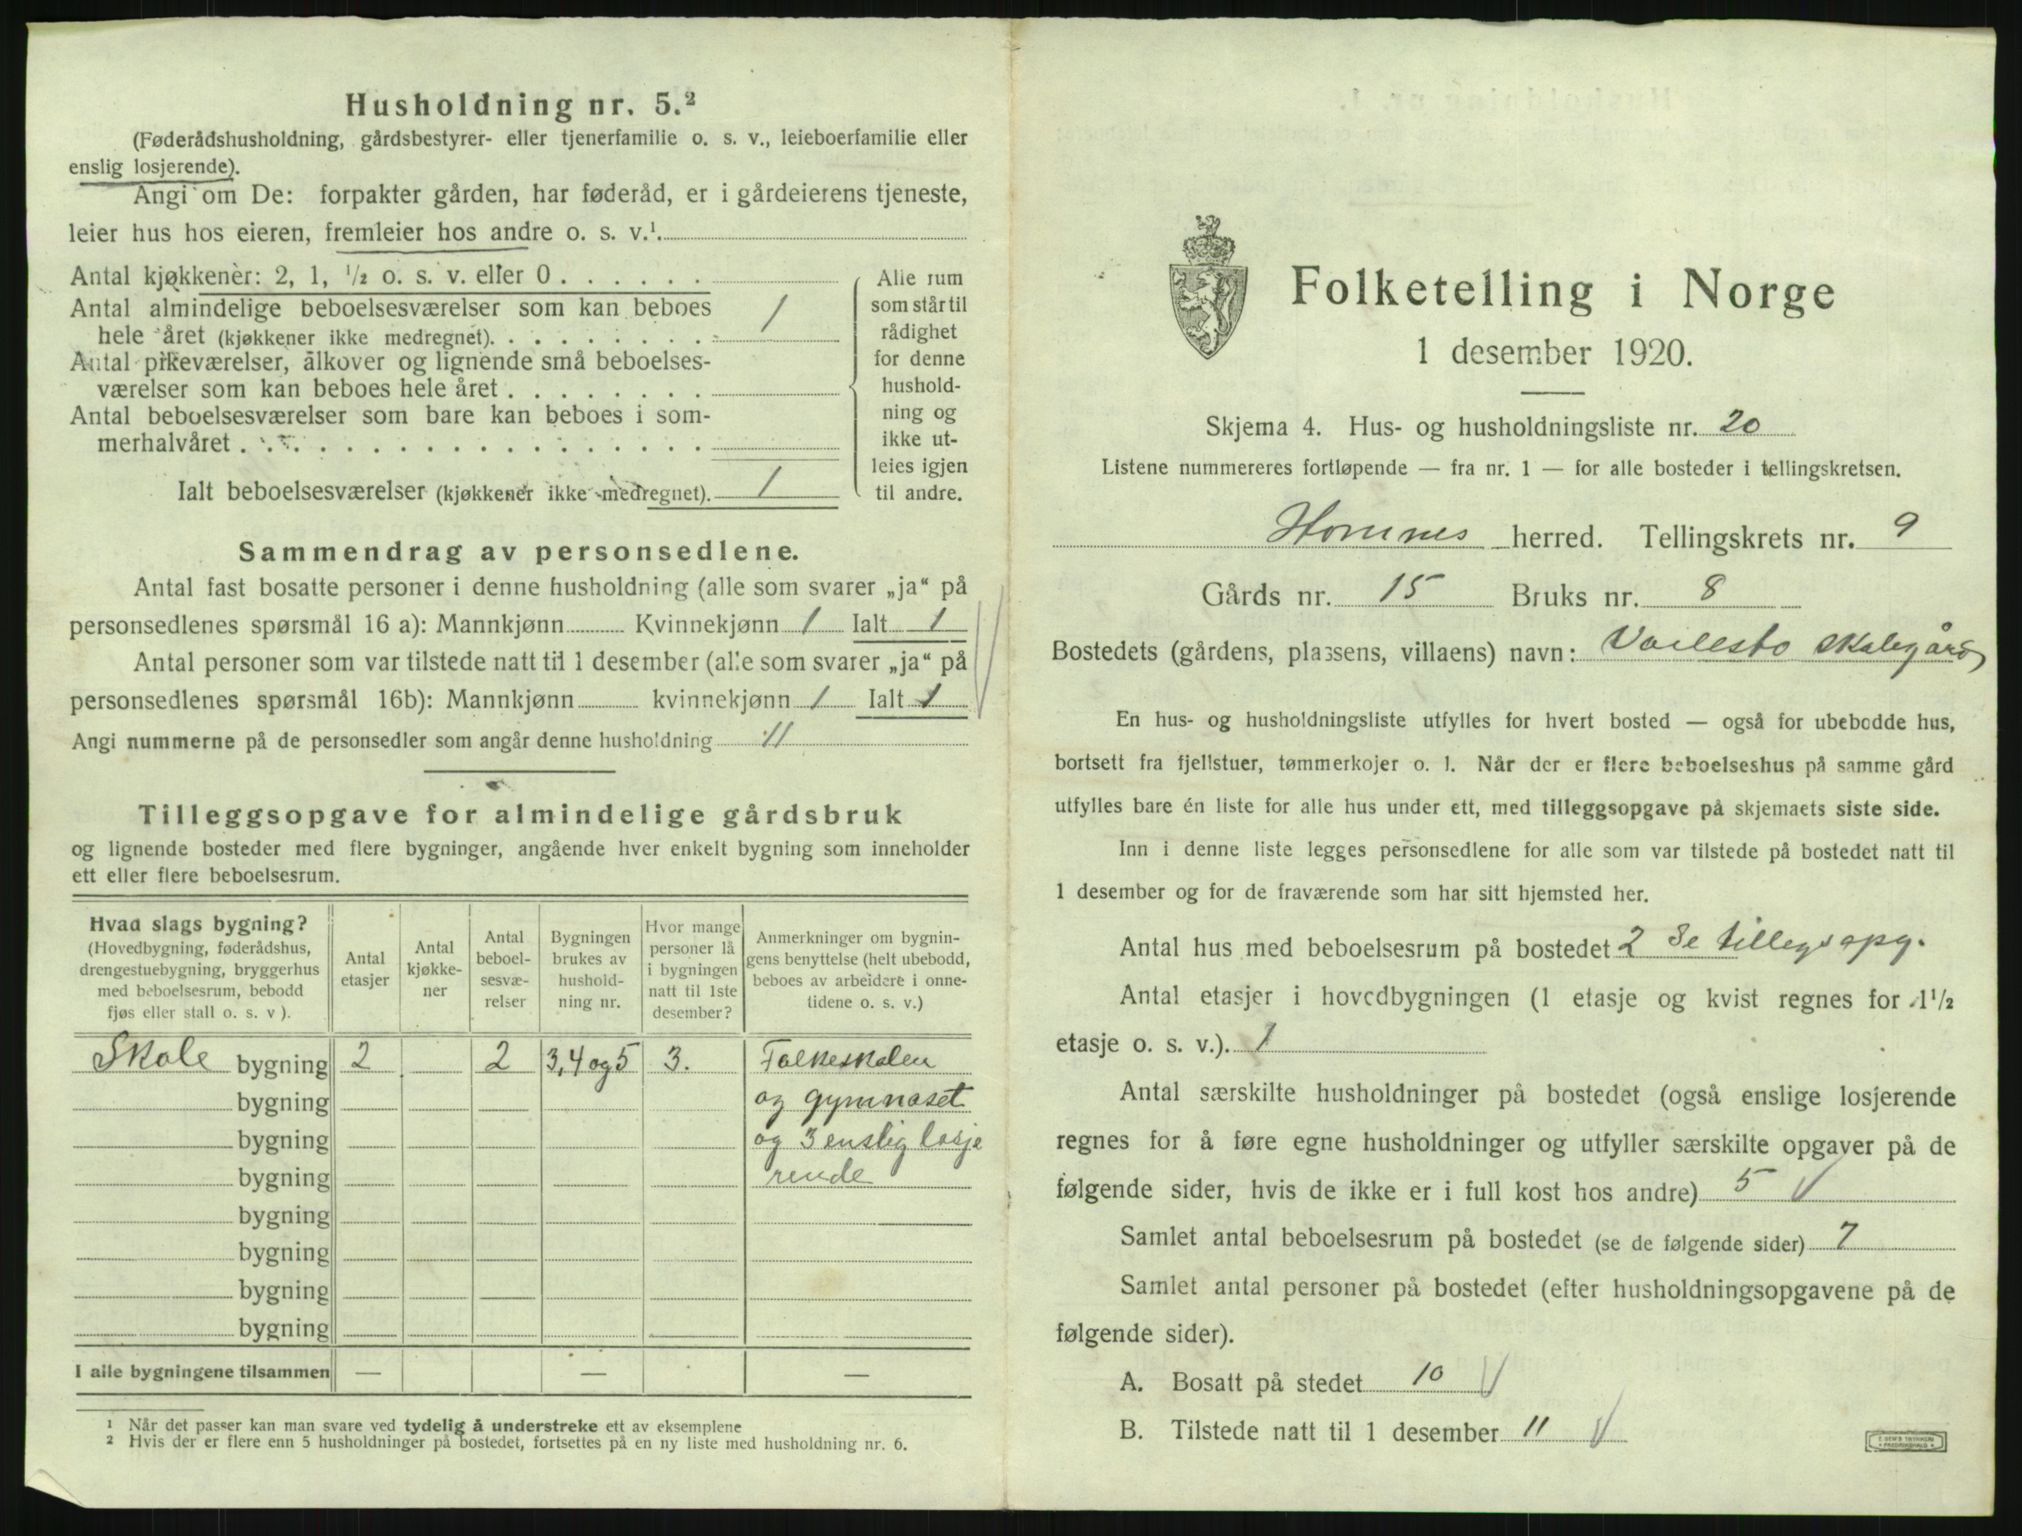 Husholdning nr. 5.²
(Føderådshusholdning, gårdsbestyrer- eller tjenerfamilie o. s. v., leieboerfamilie eller
enslig losjerende).
Angi om De: forpakter gården, har føderåd, er i gårdeierens tjeneste,
leier hus hos eieren, fremleier hos andre o. s. v.¹.
Antal kjøkkener: 2, 1, ½ o. s. v. eller 0 . . . . . .
Antal almindelige beboelsesværelser som kan beboes
hele året (kjøkkener ikke medregnet). . . . . . . . . 1
Antal pikeværelser, alkover og lignende små beboelses-
værelser som kan beboes hele året . . . . . . . .
Antal beboelsesværelser som bare kan beboes i som-
merhalvåret . . . . . . . . . . . . . . . . . .
Ialt beboelsesværelser (kjøkkener ikke medregnet). 1
Alle rum
som står til
rådighet
for denne
hushold-
ning og
ikke ut-
leies igjen
til andre.
Sammendrag av personsedlene.
Antal fast bosatte personer i denne husholdning (alle som svarer „ja“ på
personsedlenes spørsmål 16 a): Mannkjønn Kvinnekjønn 1 Ialt 1
Antal personer som var tilstede natt til 1 desember (alle som svarer „ja“ på
personsedlenes spørsmål 16b): Mannkjønn kvinnekjønn 1 Ialt 1
Angi nummerne på de personsedler som angår denne husholdning 11
Tilleggsopgave for almindelige gårdsbruk
og lignende bosteder med flere bygninger, angående hver enkelt bygning som inneholder
ett eller flere beboelsesrum.
Hvad slags bygning?
(Hovedbygning, føderådshus,
drengestuebygning, bryggerhus
med beboelsesrum, bebodd
fjøs eller stall o. s. v ).
Antal
etasjer
Antal
kjøkke-
ner
Antal
beboel-
sesvæ-
relser
Bygningen
brukes av
hushold-
ning nr.
Hvor mange
personer lå
i bygningen
natt til 1ste
desember?
Anmerkninger om bygnin-
gens benyttelse (helt ubebodd,
beboes av arbeidere i onne-
tidene o. s. v.)
Skole bygning 2 2 3,4 og 5 3. Folkeskolen
bygning og gymnaset
bygning og 3 enslig losje
bygning rende
bygning
bygning
bygning
bygning
I alle bygningene tilsammen — — —
¹ Når det passer kan man svare ved tydelig å understreke ett av eksemplene
² Hvis der er flere enn 5 husholdninger på bostedet, fortsettes på en ny liste med husholdning nr. 6.
Folketelling i Norge
1 desember 1920.
Skjema 4. Hus- og husholdningsliste nr. 20
Listene nummereres fortløpende — fra nr. 1 — for alle bosteder i tellingskretsen.
Hornnes herred. Tellingskrets nr. 9
Gårds nr. 15 Bruks nr. 8
Bostedets (gårdens, plassens, villaens) navn: skolegård
En hus- og husholdningsliste utfylles for hvert bosted — også for ubebodde hus,
bortsett fra fjellstuer, tømmerkojer o. l. Når der er flere beboelseshus på samme gård
utfylles bare én liste for alle hus under ett, med tilleggsopgave på skjemaets siste side.
Inn i denne liste legges personsedlene for alle som var tilstede på bostedet natt til
1 desember og for de fraværende som har sitt hjemsted her.
Antal hus med beboelsesrum på bostedet 2 Se tillegsopg.
Antal etasjer i hovedbygningen (1 etasje og kvist regnes for 1½
etasje o. s. v.). 1
Antal særskilte husholdninger på bostedet (også enslige losjerende
regnes for å føre egne husholdninger og utfyller særskilte opgaver på de
følgende sider, hvis de ikke er i full kost hos andre) 5
Samlet antal beboelsesrum på bostedet (se de følgende sider) 7
Samlet antal personer på bostedet (efter husholdningsopgavene på de
følgende sider).
A. Bosatt på stedet 10
B. Tilstede natt til 1 desember 11